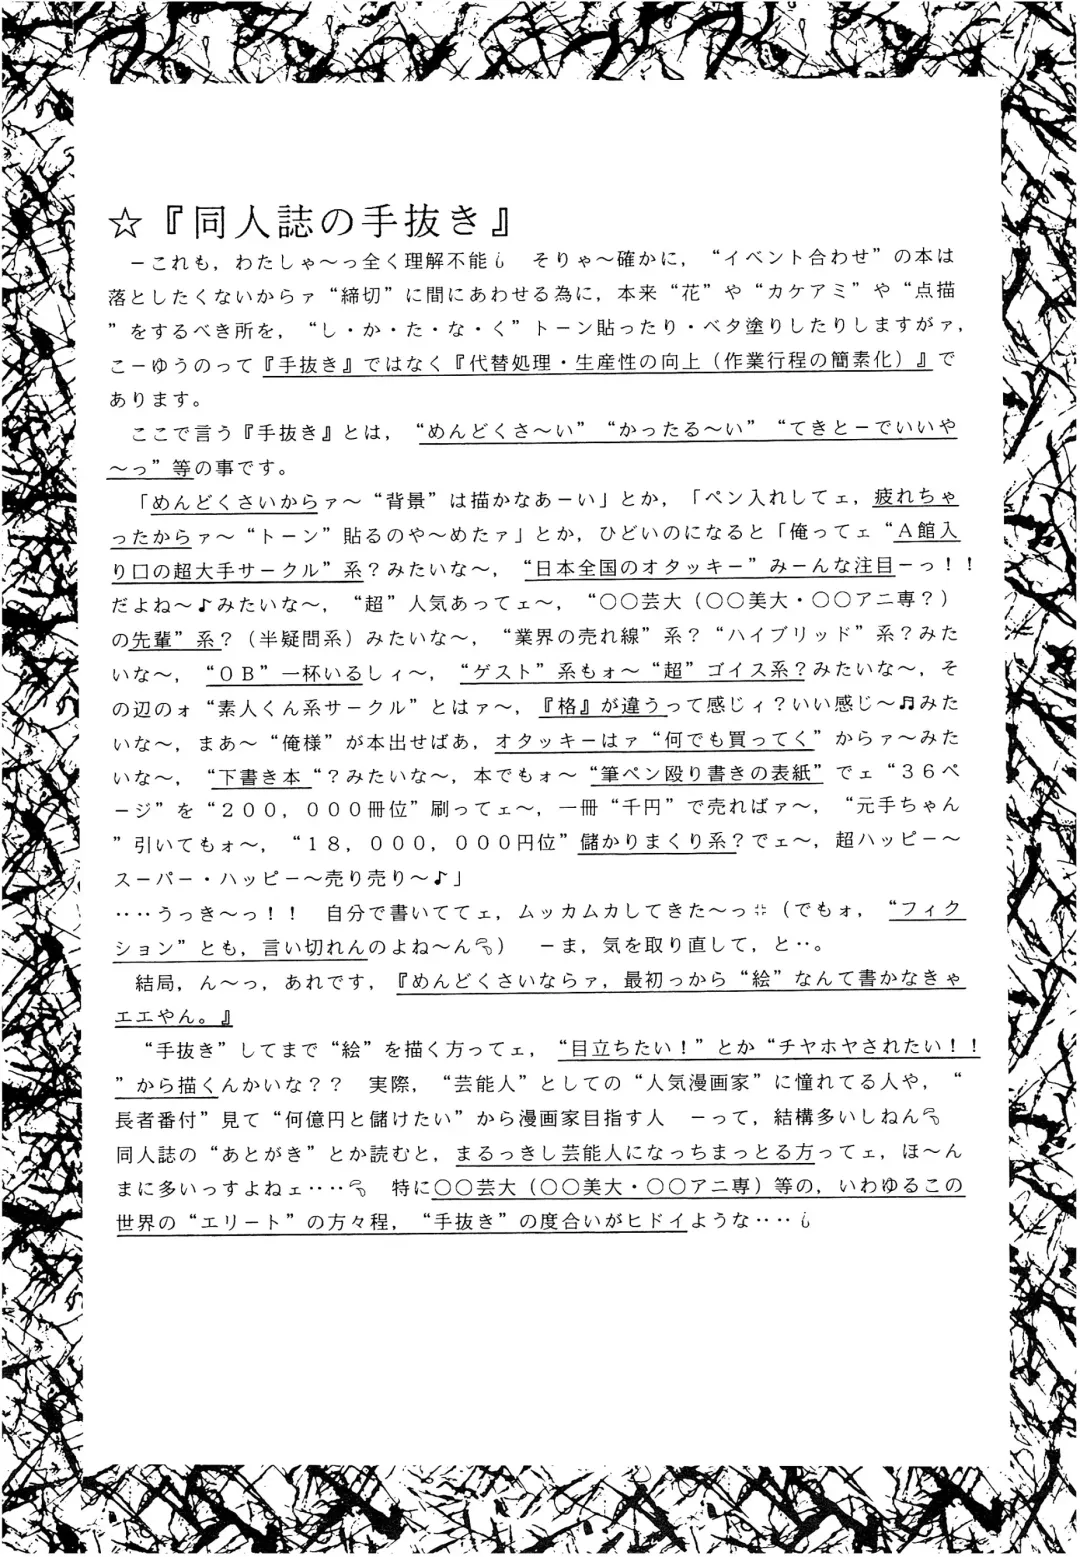 ☆『同人誌の手抜き』
－これも，わたしゃ～っ全く理解不能　そりゃ～確かに，“イベント合わせ”の本は
落としたくないからァ“締切”に間にあわせる為に，本来“花”や“カケアミ”や“点描
”をするべき所を，“し・か・た・な・く”トーン貼ったり・ベタ塗りしたりしますがァ，
こーゆうのって『手抜き』ではなく『代替処理・生産性の向上（作業行程の簡素化）』で
あります。
ここで言う『手抜き』とは，“めんどくさ～い”“かったる～い”“てきとーでいいや
～っ”等の事です。
「めんどくさいからァ～“背景”は描かなあーい」とか，「ペン入れしてェ，疲れちゃ
ったからァ～“トーン”貼るのや～めたァ」とか，ひどいのになると「俺ってェ“Ａ館入
り口の超大手サークル”系？みたいな～，“日本全国のオタッキー”みーんな注目ーっ！！
だよね～♪みたいな～，“超”人気あってェ～，“○○芸大（○○美大・○○アニ専？）
の先輩”系？（半疑問系）みたいな～，“業界の売れ線”系？“ハイブリッド”系？みた
いな～，“ＯＢ”一杯いるしィ～，“ゲスト”系もォ～“超”ゴイス系？みたいな～，そ
の辺のォ“素人くん系サークル”とはァ～，『格』が違うって感じィ？いい感じ～♬みた
いな～，まあ～“俺様”が本出せばあ，オタッキーはァ“何でも買ってく”からァ～みた
いな～，“下書き本“？みたいな～，本でもォ～“筆ペン殴り書きの表紙”でェ“３６ペ
ージ”を“２００，０００冊位”刷ってェ～，一冊“千円”で売ればァ～，“元手ちゃん
”引いてもォ～，“１８，０００，０００円位”儲かりまくり系？でェ～，超ハッピー～
スーパー・ハッピー～売り売り～♪」
‥‥うっき～っ！！　自分で書いててェ，ムッカムカしてきた～っ（でもォ，“フィク
ション”とも，言い切れんのよね～ん）　－ま，気を取り直して，と‥。
結局，ん～っ，あれです，『めんどくさいならァ，最初っから“絵”なんて書かなきゃ
エエやん。』
“手抜き”してまで“絵”を描く方ってェ，“目立ちたい！”とか“チヤホヤされたい！！
”から描くんかいな？？　実際，“芸能人”としての“人気漫画家”に憧れてる人や，“
長者番付”見て“何億円と儲けたい”から漫画家目指す人　－って，結構多いしねん
同人誌の“あとがき”とか読むと，まるっきし芸能人になっちまっとる方ってェ，ほ～ん
まに多いっすよねェ‥‥　特に○○芸大（○○美大・○○アニ専）等の，いわゆるこの
世界の“エリート”の方々程，“手抜き”の度合いがヒドイような‥‥